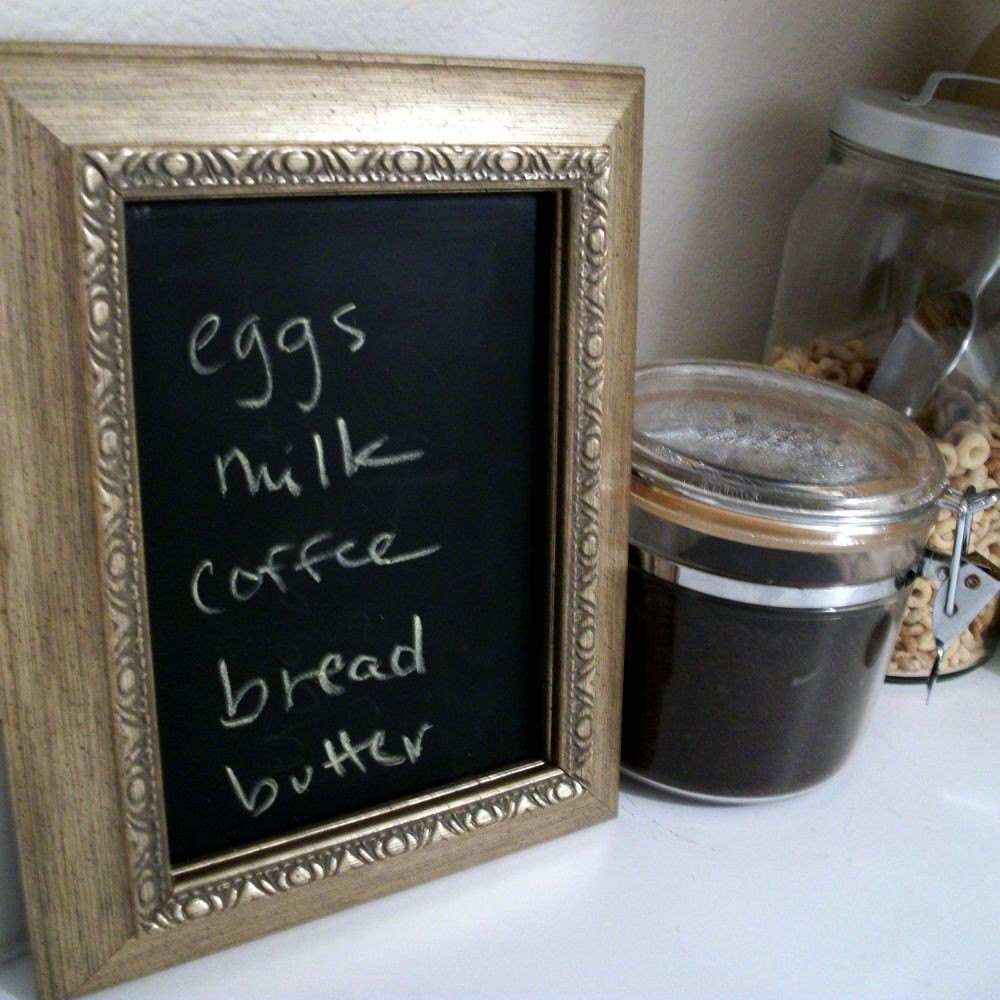 eggs
milk
coffee
bread
butter